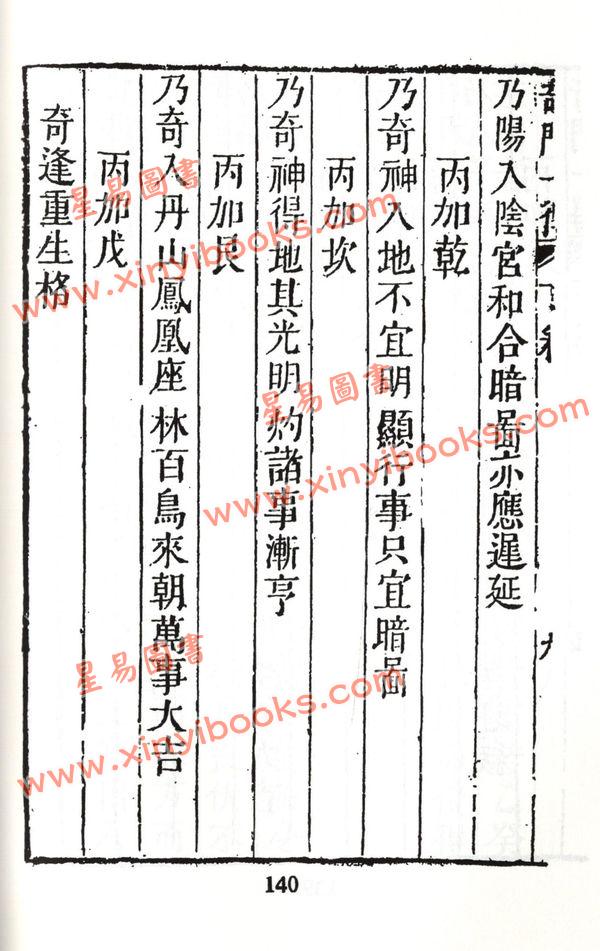 乃陽入陰宮和合暗啚亦應遲延
丙加乾
乃奇神入地不宜明顯行事只宜暗啚
丙加坎
乃奇神得地其光明灼諸事漸亨
丙加艮
乃奇入丹山鳳凰座林百鳥來朝萬事大吉
丙加戊
奇逢重生格
140
星易圖書
www.xinyibooks.com
星易圖書
www.xinyibooks.com
星易圖書
www.xinyibooks.com